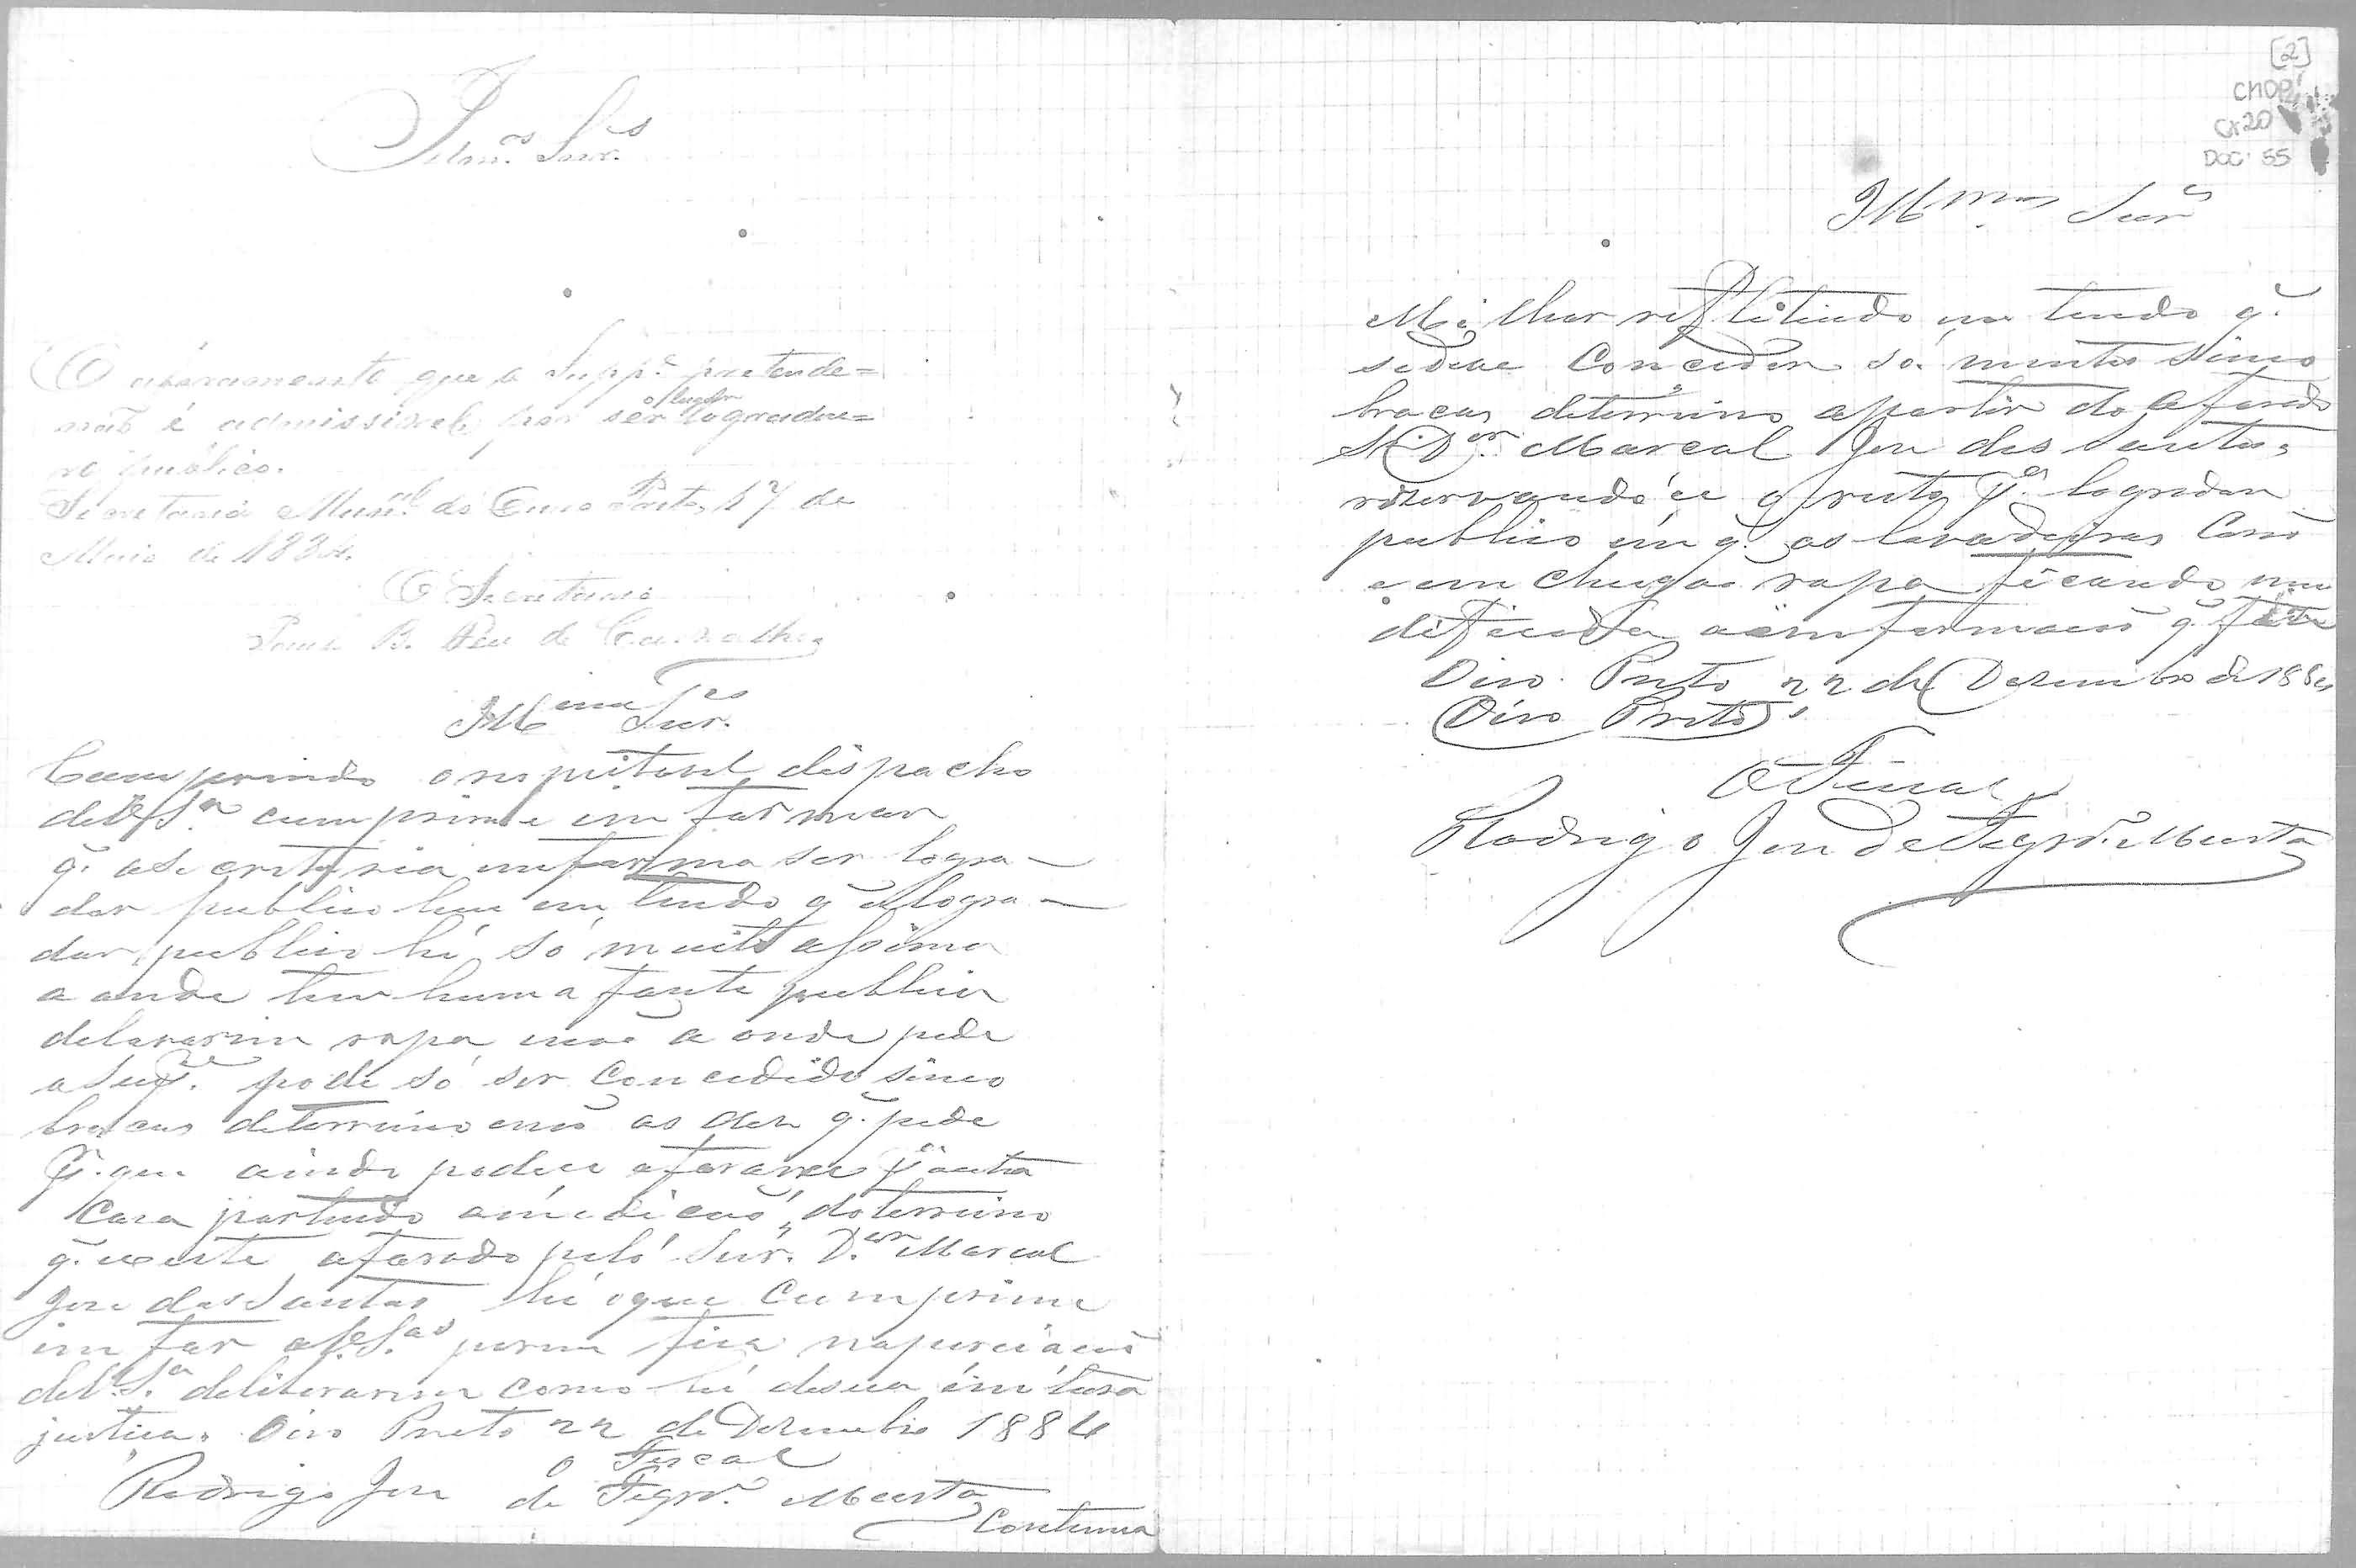 Illmos Snrs
O aforamento que a Suppe pretende=
não é admissivel por ser o lugar logradou=
ro publico.
Secretaria Munal do Ouro Preto, 17 de
Maio de 1884.
O Secretario
B. de Carvalho
Illmos Snrs
Cumprindo o respeitavel dispacho
de VSa cumprime em formar
q. a Secretaria emforma ser logra-
dor publico heu em tendo q o logra-
dor publico hé só muito assima
a onde tem huma fonte publica
de lavarem ropa mas a onde pede
a Supe. pode só ser concedido sinco
bracas deterreino enão as des q. pede
pr. que ainda podece aforarce pa outra
Caza partindo do terreino
q. existe aforado pelo Snr. Dor Marcal
Joze dos Santos hé oque cumprime
in for a VSas porem fica
de VSa deliberarem como hé desua
justica. Oiro Preto 22 de Dezembro 1884
O Fiscal
Rodrigo Joze de Figrdo. Murta
Continua
[2]
CHOP
CX20
DOC 55
Illmos Snrs
Milhor reflitindo en tendo q.
sedeve Conceder só mente sinco
bracas deterreino apartir do aforado
Dor Marcal Joze dos Santos,
rezervando ce o resto pa logrador
publico em q. as lavadeiras Corão
e em chugão ropa ficando mu
dificada aemformacão q.
Oiro Preto 22 de Dezembro de 1884
Oiro Preto
O Fiscal
Rodrigo Joze de Figrdo. Murta